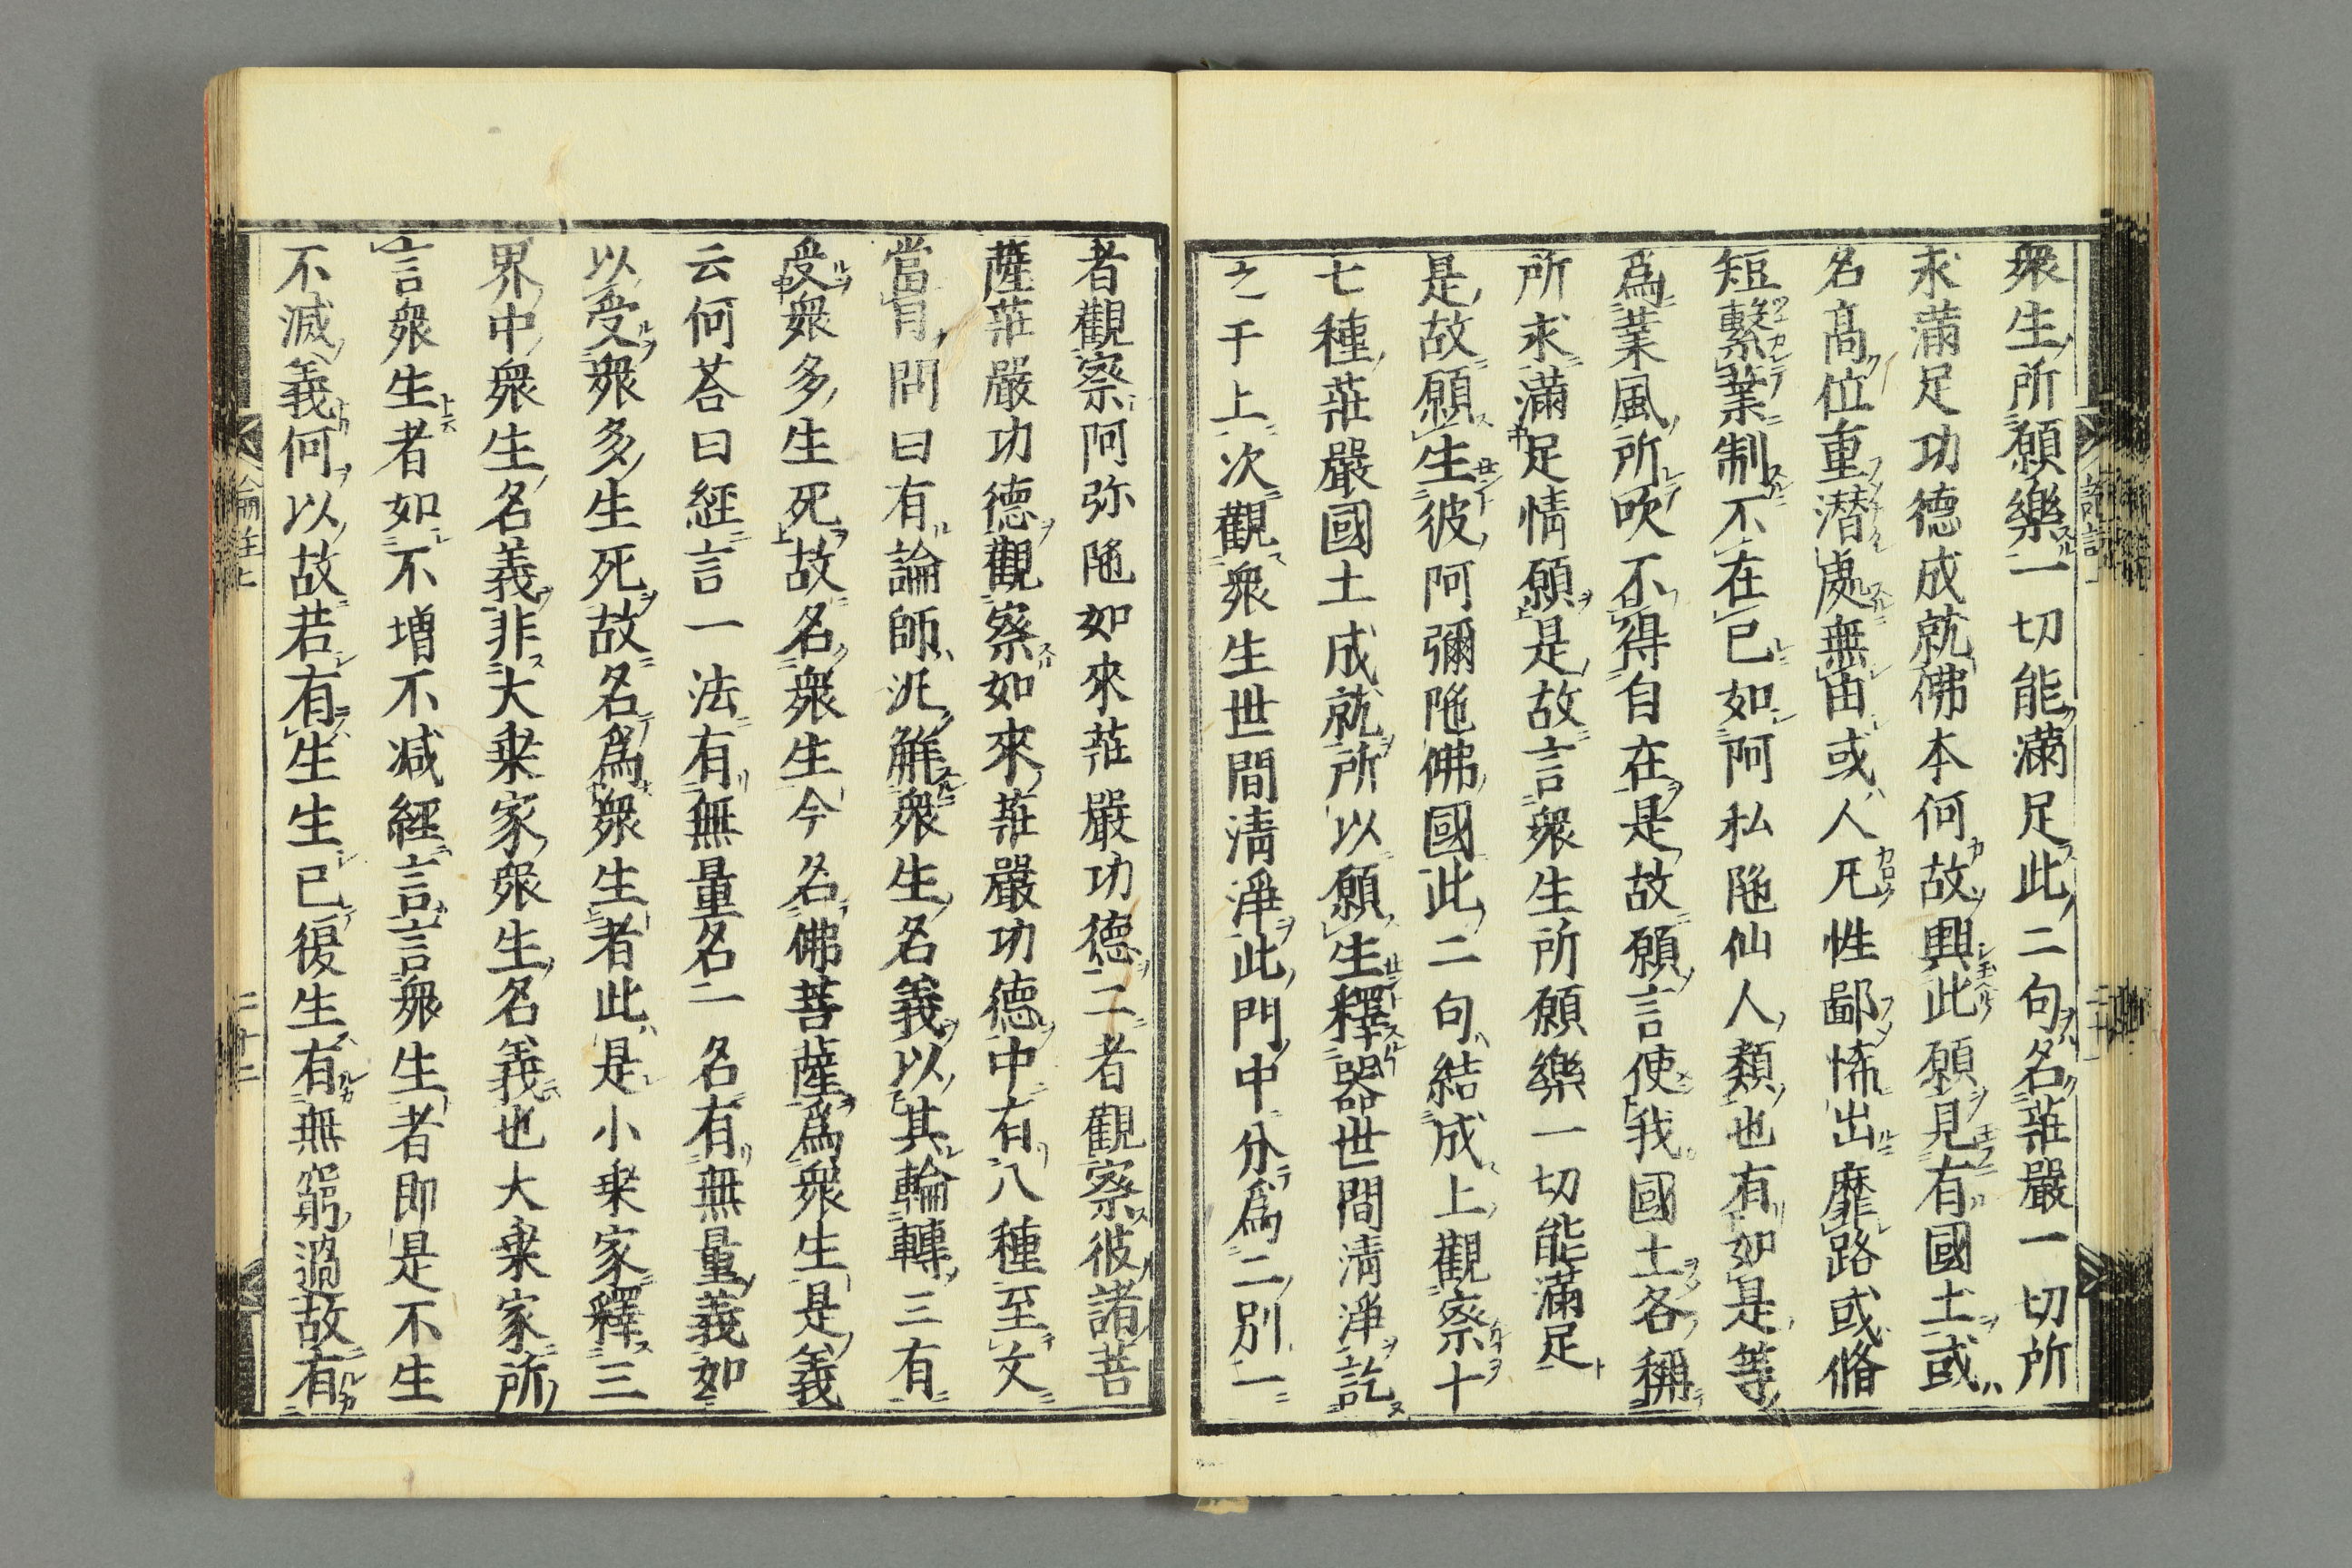 衆生所願樂一切能滿足此二句名莊嚴一切所
求滿足功德成就佛本何故興此願見有國土或
名髙位重潜處無由或人凡性鄙悕出靡路或脩
短繫業制不在已如阿私陁仙人類也有如是等
爲業風所吹不得自在是故願言使我國土各稱
所求滿足情願是故言衆生所願樂一切能滿足
是故願生彼阿彌陁佛國此二句結成上觀察十
七種莊嚴國土成就所以願生釋器世間清淨訖
之于上次觀衆生世間清淨此門中分爲二別一
者觀察阿弥陁如來莊嚴功德二者觀察彼諸菩
薩莊嚴功德觀察如來莊嚴功德中有八種至文
當有問曰有論師汎解衆生名義以其輪轉三有
受衆多生死故名衆生今名佛菩薩爲衆生是義
云何荅曰經言一法有無量名一名有無量義如
以受衆多生死故名爲衆生者此是小乗家釋三
界中衆生名義非大乗家衆生名義也大乗家所
言衆生者如不増不减經言言衆生者即是不生
不滅義何以故若有生生已復生有無窮過故有
論註上
二十二